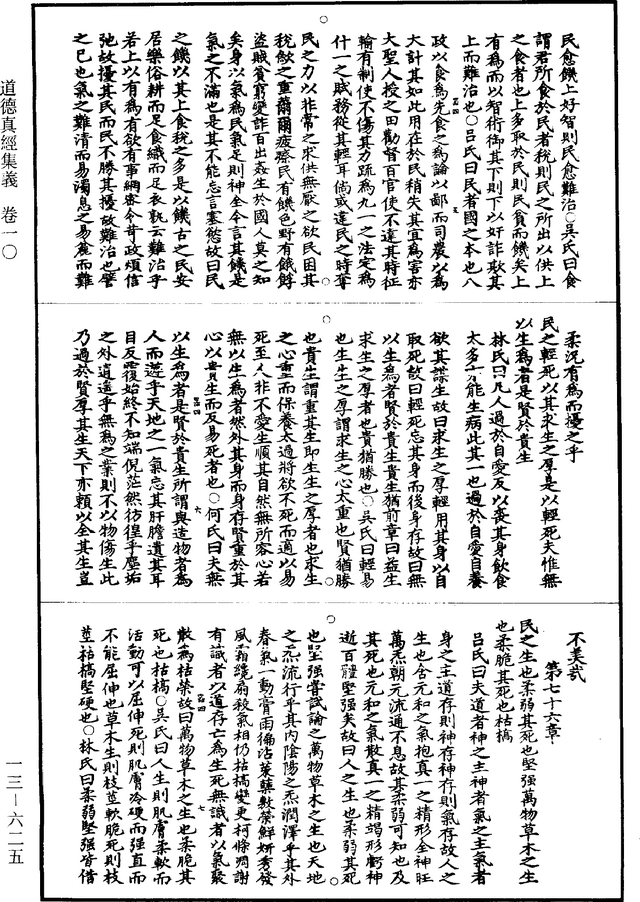 民愈饑上好智則民愈難治○吳氏曰食
謂君所食於民者稅則民之所出以供上
之食者也上多取於民則民貧而饑矣上
有為而以智術御其下則下以奸詐欺其
上而難治也○呂氏曰民者國之本也八
政以食為先食之為論以鄙而司農以為
大計其如此用在於民稍失其宜為害亦
大聖人授之田勸督百官使不違其時征
輸有制使不傷其力疏為九一之法定為
什一之賦務從其輕耳倘或違民之時奪
民之力以非常之求供無厭之欲民困其
稅斂之重薾爾疲瘵民有饑色野有餓莩
盜賊貧窮變詐百出姦生於國人莫之知
矣身以氣為民氣足則神全今言其饑是
氣之不滿也是其不能忘言塞慾故曰民
之饑以其上食稅之多是以饑古之民安
居樂俗耕而足食織而足衣孰云難治乎
若上以有為有欲有事網密令苛政煩信
弛故擾其民而民不勝其擾故難治也譬
之己也氣之難清而易濁息之易麁而難
柔況有為而擾之乎
民之輕死以其求生之厚是以輕死夫惟無
以生為者是賢於貴生
林氏曰凡人過於自愛反以喪其身飲食
太多亦能生病此其一也過於自愛自養
欲其謀生故曰求生之厚輕用其身以自
取死故曰輕死忘其身而後身存故曰無
以生為者賢於貴生貴生猶前章曰益生
求生之厚者也貴猶勝也○吳氏曰輕易
也生生之厚謂求生之心太重也賢猶勝
也貴生謂重其生即生生之厚者也求生
之心重而保養太過將欲不死而適以易
死至人非不愛生順其自然無所容心若
無以生為者然外其身而身存賢重於其
心以貴生而反易死者也○何氏曰夫無
以生為者是賢於貴生所謂與造物者為
人而遊乎天地之一氣忘其肝膽遺其耳
目反覆始終不知端倪茫然彷徨乎塵垢
之外逍遙乎無為之業則不以物傷生此
乃過於賢厚其生天下亦賴以全其生豈
不美哉
第七十六章
民之生也柔弱其死也堅强萬物草木之生
也柔脆其死也枯槁
呂氏曰夫道者神之主神者氣之主氣者
身之主道存則神存神存則氣存故人之
生也含元和之氣抱真一之精形全神旺
萬炁朝元流通不息故其柔弱可知也及
其死也元和之氣散真一之精竭形虧神
逝百體堅强矣故曰人之生也柔弱其死
也堅强嘗試論之萬物草木之生也天地
之炁流行乎其內陰陽之炁潤澤乎其外
春氣一動膏雨徧沾葉蘂敷榮鮮妍秀發
風霜纔扇殺氣相仍枯槁變更柯條凋謝
有識者以道存亡為生死無識者以氣聚
散為枯榮故曰萬物草木之生也柔脆其
死也枯槁○吳氏曰人生則肌膚柔軟而
活動可以屈伸死則肌膚冷硬而强直而
不能屈伸也草木生則枝莖軟脆死則枝
莖枯槁堅硬也○林氏曰柔弱堅强皆借
道德真經集義 卷一〇
一三—六二五